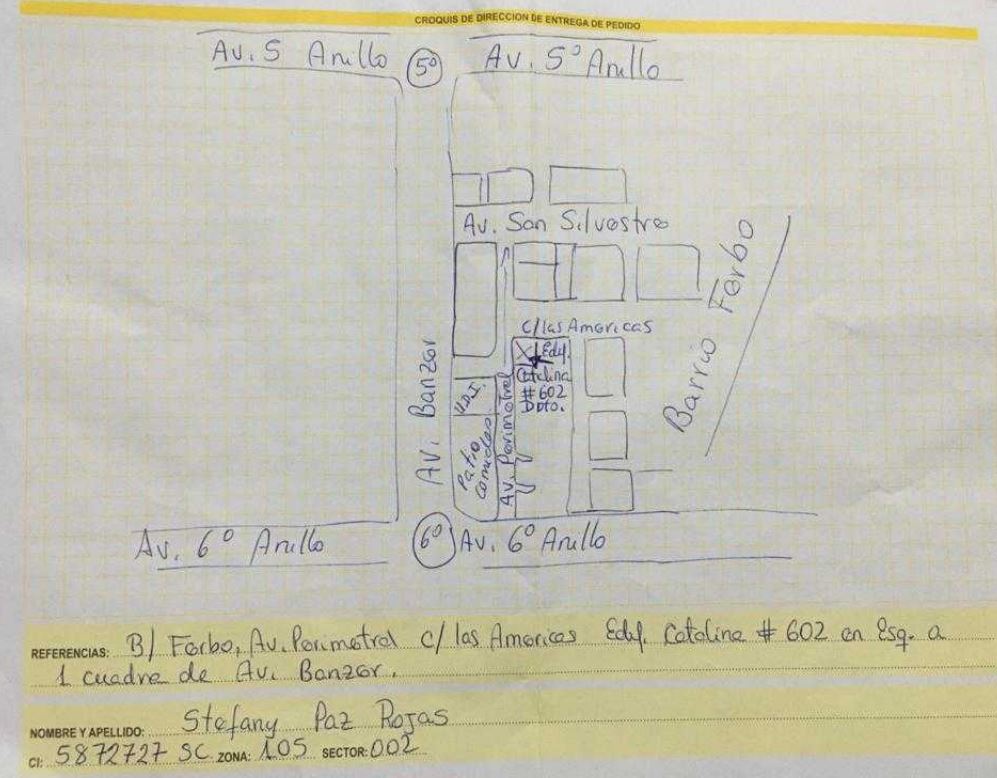 CROQUIS DE DIRECCION DE ENTREGA DE PEDIDO
Av. 5 Anillo
5º
Av. 5º Anillo
Av. San Silvestre
C/las Americas
X Edif.
Catalina
# 602
Dpto.
Av. Banzer
Patio
Comidas
Av. Perimetral
Barrio Ferbo
Av. 6º Anillo
6º
Av. 6º Anillo
REFERENCIAS: B/ Ferbo, Av. Perimetral c/ las Americas Edif. Catalina # 602 en Esq. a
1 cuadra de Av. Banzer.
NOMBRE Y APELLIDO: Stefany Paz Rojas
CI: 5872727 SC ZONA: 105 SECTOR: 002